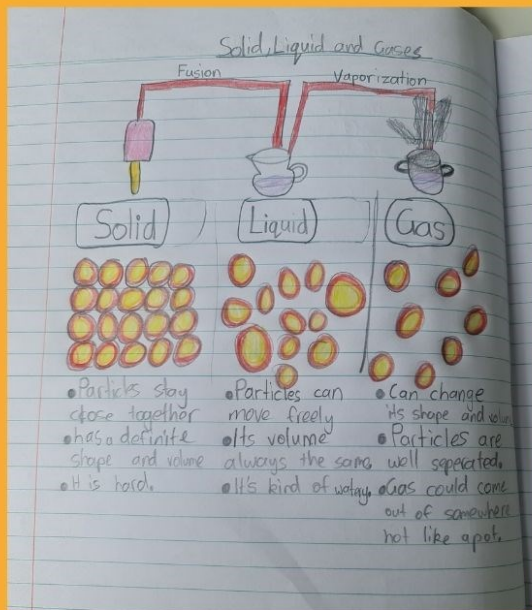 Solid, Liquid and Gases
Fusion
Vaporization
Solid
Liquid
Gas
•Particles stay
close together
•has a definite
shape and volume
•It is hard.
•Particles can
move freely
•Its volume
always the same
•It's kind of watery.
•Can change
its shape and volume
•Particles are
well seperated.
•Gas could come
out of somewhere
hot like a pot.